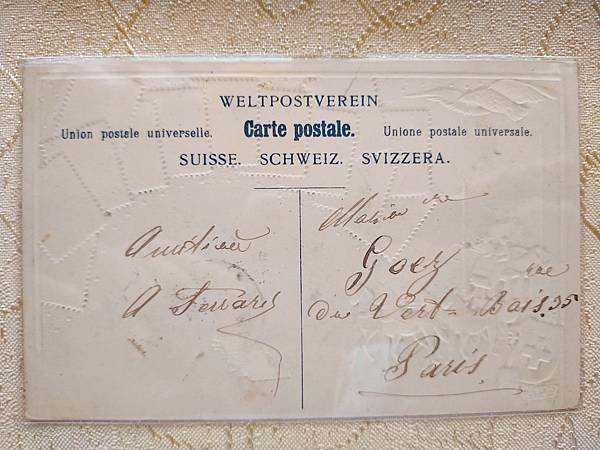 WELTPOSTVEREIN
Union postale universelle. Carte postale. Unione postale universale.
SUISSE. SCHWEIZ. SVIZZERA.
A
Goez
rue
du Vert-Bois. 35
Paris